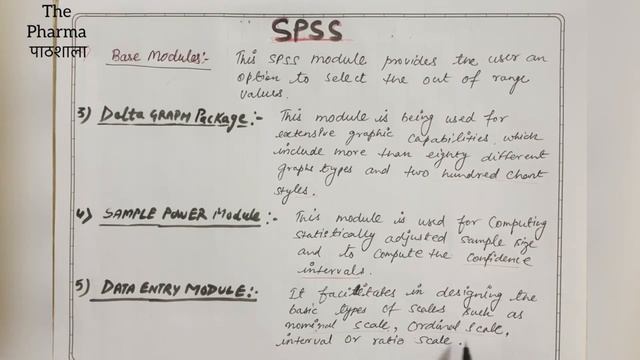 The
Pharma
पाठशाला
SPSS
Base Modules:- This SPSS module provides the user an
option to select the out of range
values.
3) Delta GRAPH Package:- This module is being used for
extensive graphic capabilities which
include more than eighty different
graphs types and two hundred chart
styles.
4) SAMPLE POWER Module:- This module is used for computing
statistically adjusted sample size
and to compute the confidence
intervals.
5) DATA ENTRY MODULE:- It facilitates in designing the
basic types of scales such as
nominal scale, ordinal scale,
interval or ratio scale.